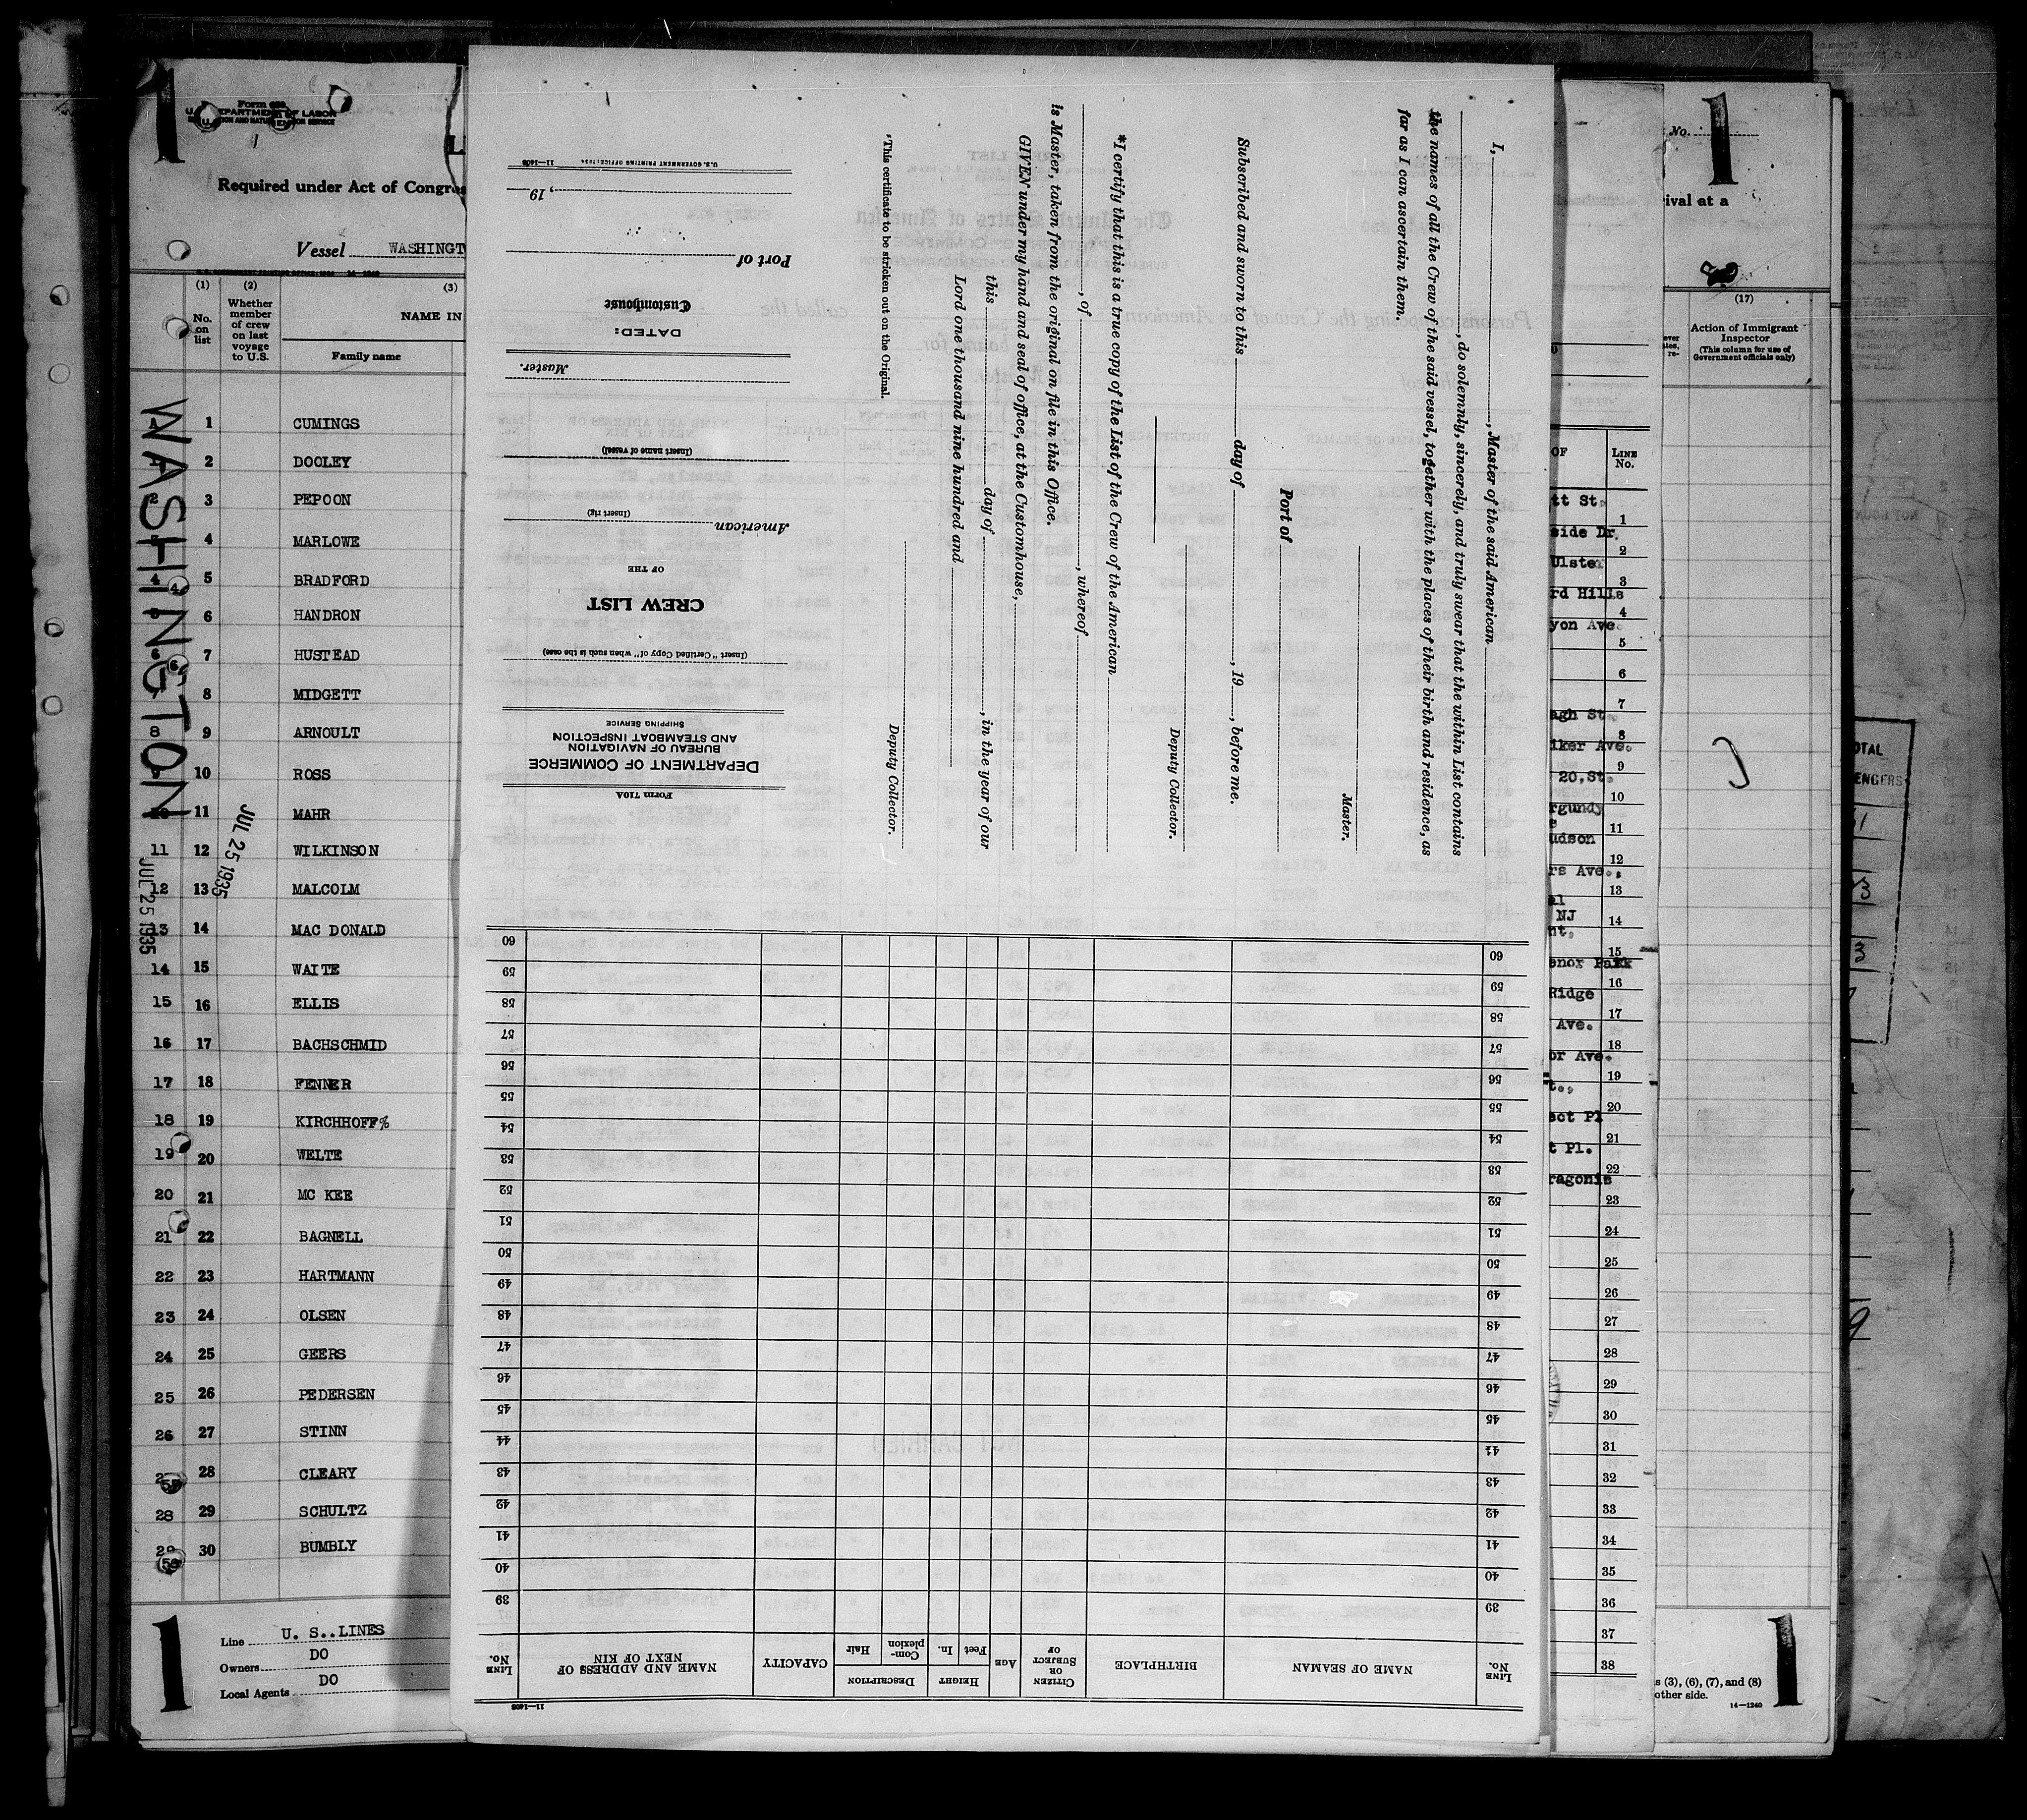 1
Form 689
U. S. DEPARTMENT OF LABOR
Required under Act of Congre
Vessel WASHINGT
(1) (2) (3)
No. on list
Whether member of crew on last voyage to U.S.
NAME IN
Family name
WASHINGTON
JUL 25 1935
JUL 25 1935
1 CUMINGS
2 DOOLEY
2 3 PEPOON
4 MARLOWE
4 5 BRADFORD
5 6 HANDRON
6 7 HUSTEAD
7 8 MIDGETT
8 9 ARNOULT
9 10 ROSS
10 11 MAHR
11 12 WILKINSON
12 13 MALCOLM
13 14 MAC DONALD
14 15 WAITE
15 16 ELLIS
16 17 BACHSCHMID
17 18 FENNER
18 19 KIRCHHOFF%
19 20 WELTE
20 21 MC KEE
21 22 BAGNELL
22 23 HARTMANN
23 24 OLSEN
24 25 GEERS
25 26 PEDERSEN
26 27 STINN
27 28 CLEARY
28 29 SCHULTZ
29 30 BUMBLY
1
Line U. S..LINES
Owners DO
Local Agents DO
I, , Master of the said American
, do solemnly, sincerely, and truly swear that the within List contains
the names of all the Crew of the said vessel, together with the places of their birth and residence, as
far as I can ascertain them.
Master.
Port of
Subscribed and sworn to this day of , 19 , before me.
Deputy Collector.
*I certify that this is a true copy of the List of the Crew of the American
, of , whereof
is Master, taken from the original on file in this Office.
GIVEN under my hand and seal of office, at the Customhouse,
this day of , in the year of our
Lord one thousand nine hundred and
Deputy Collector.
*This certificate to be stricken out on the Original.
Form 710A
DEPARTMENT OF COMMERCE
BUREAU OF NAVIGATION
AND STEAMBOAT INSPECTION
SHIPPING SERVICE
(Insert "Certified Copy of" when such is the case)
CREW LIST
OF THE
American
(Insert rig)
(Insert name of vessel)
Master.
DATED:
Customhouse
Port of
, 19
U.S. GOVERNMENT PRINTING OFFICE: 1934 11—1408
11—1408
LINE No.
NAME OF SEAMAN
BIRTHPLACE
CITIZEN OR SUBJECT OF
AGE
HEIGHT
Feet In.
DESCRIPTION
Complexion Hair
CAPACITY
NAME AND ADDRESS OF NEXT OF KIN
LINE No.
39 39
40 40
41 41
42 42
43 43
44 44
45 45
46 46
47 47
48 48
49 49
50 50
51 51
52 52
53 53
54 54
55 55
56 56
57 57
58 58
59 59
60 60
OF LINE No.
tt St. 1
side Dr. 2
Ulster 3
rd Hills 4
yon Ave. 5
6
7
agh St. 8
iker Ave. 9
20,St. 10
rgundy 11
udson 12
rs Ave., 13
al
NJ 14
nt. 15
enor Park 16
Ridge 17
Ave. 18
or Ave. 19
t., 20
ect Pl 21
t Pl. 22
ragonis 23
24
25
26
27
28
29
30
31
32
33
34
35
36
37
38
No.
1
ival at a
(17)
Action of Immigrant Inspector
(This column for use of Government officials only)
s (3), (6), (7), and (8)
other side.
14—1240
1
OTAL
ENGERS
3
3
9